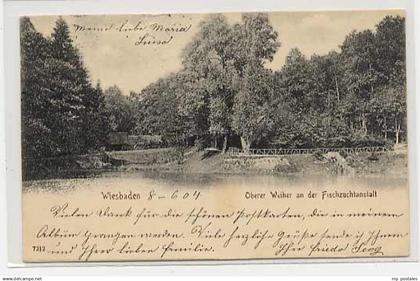 Meine liebe Maria
Luise
Wiesbaden 8-6 04 Oberer Weiher an der Fischzuchtanstalt
Vielen Dank für die schönen Postkarten, die in meinem
Album prangen werden. Viele herzliche Grüße sende ich Ihnen
und Ihrer lieben Familie. Ihre Frieda
7312